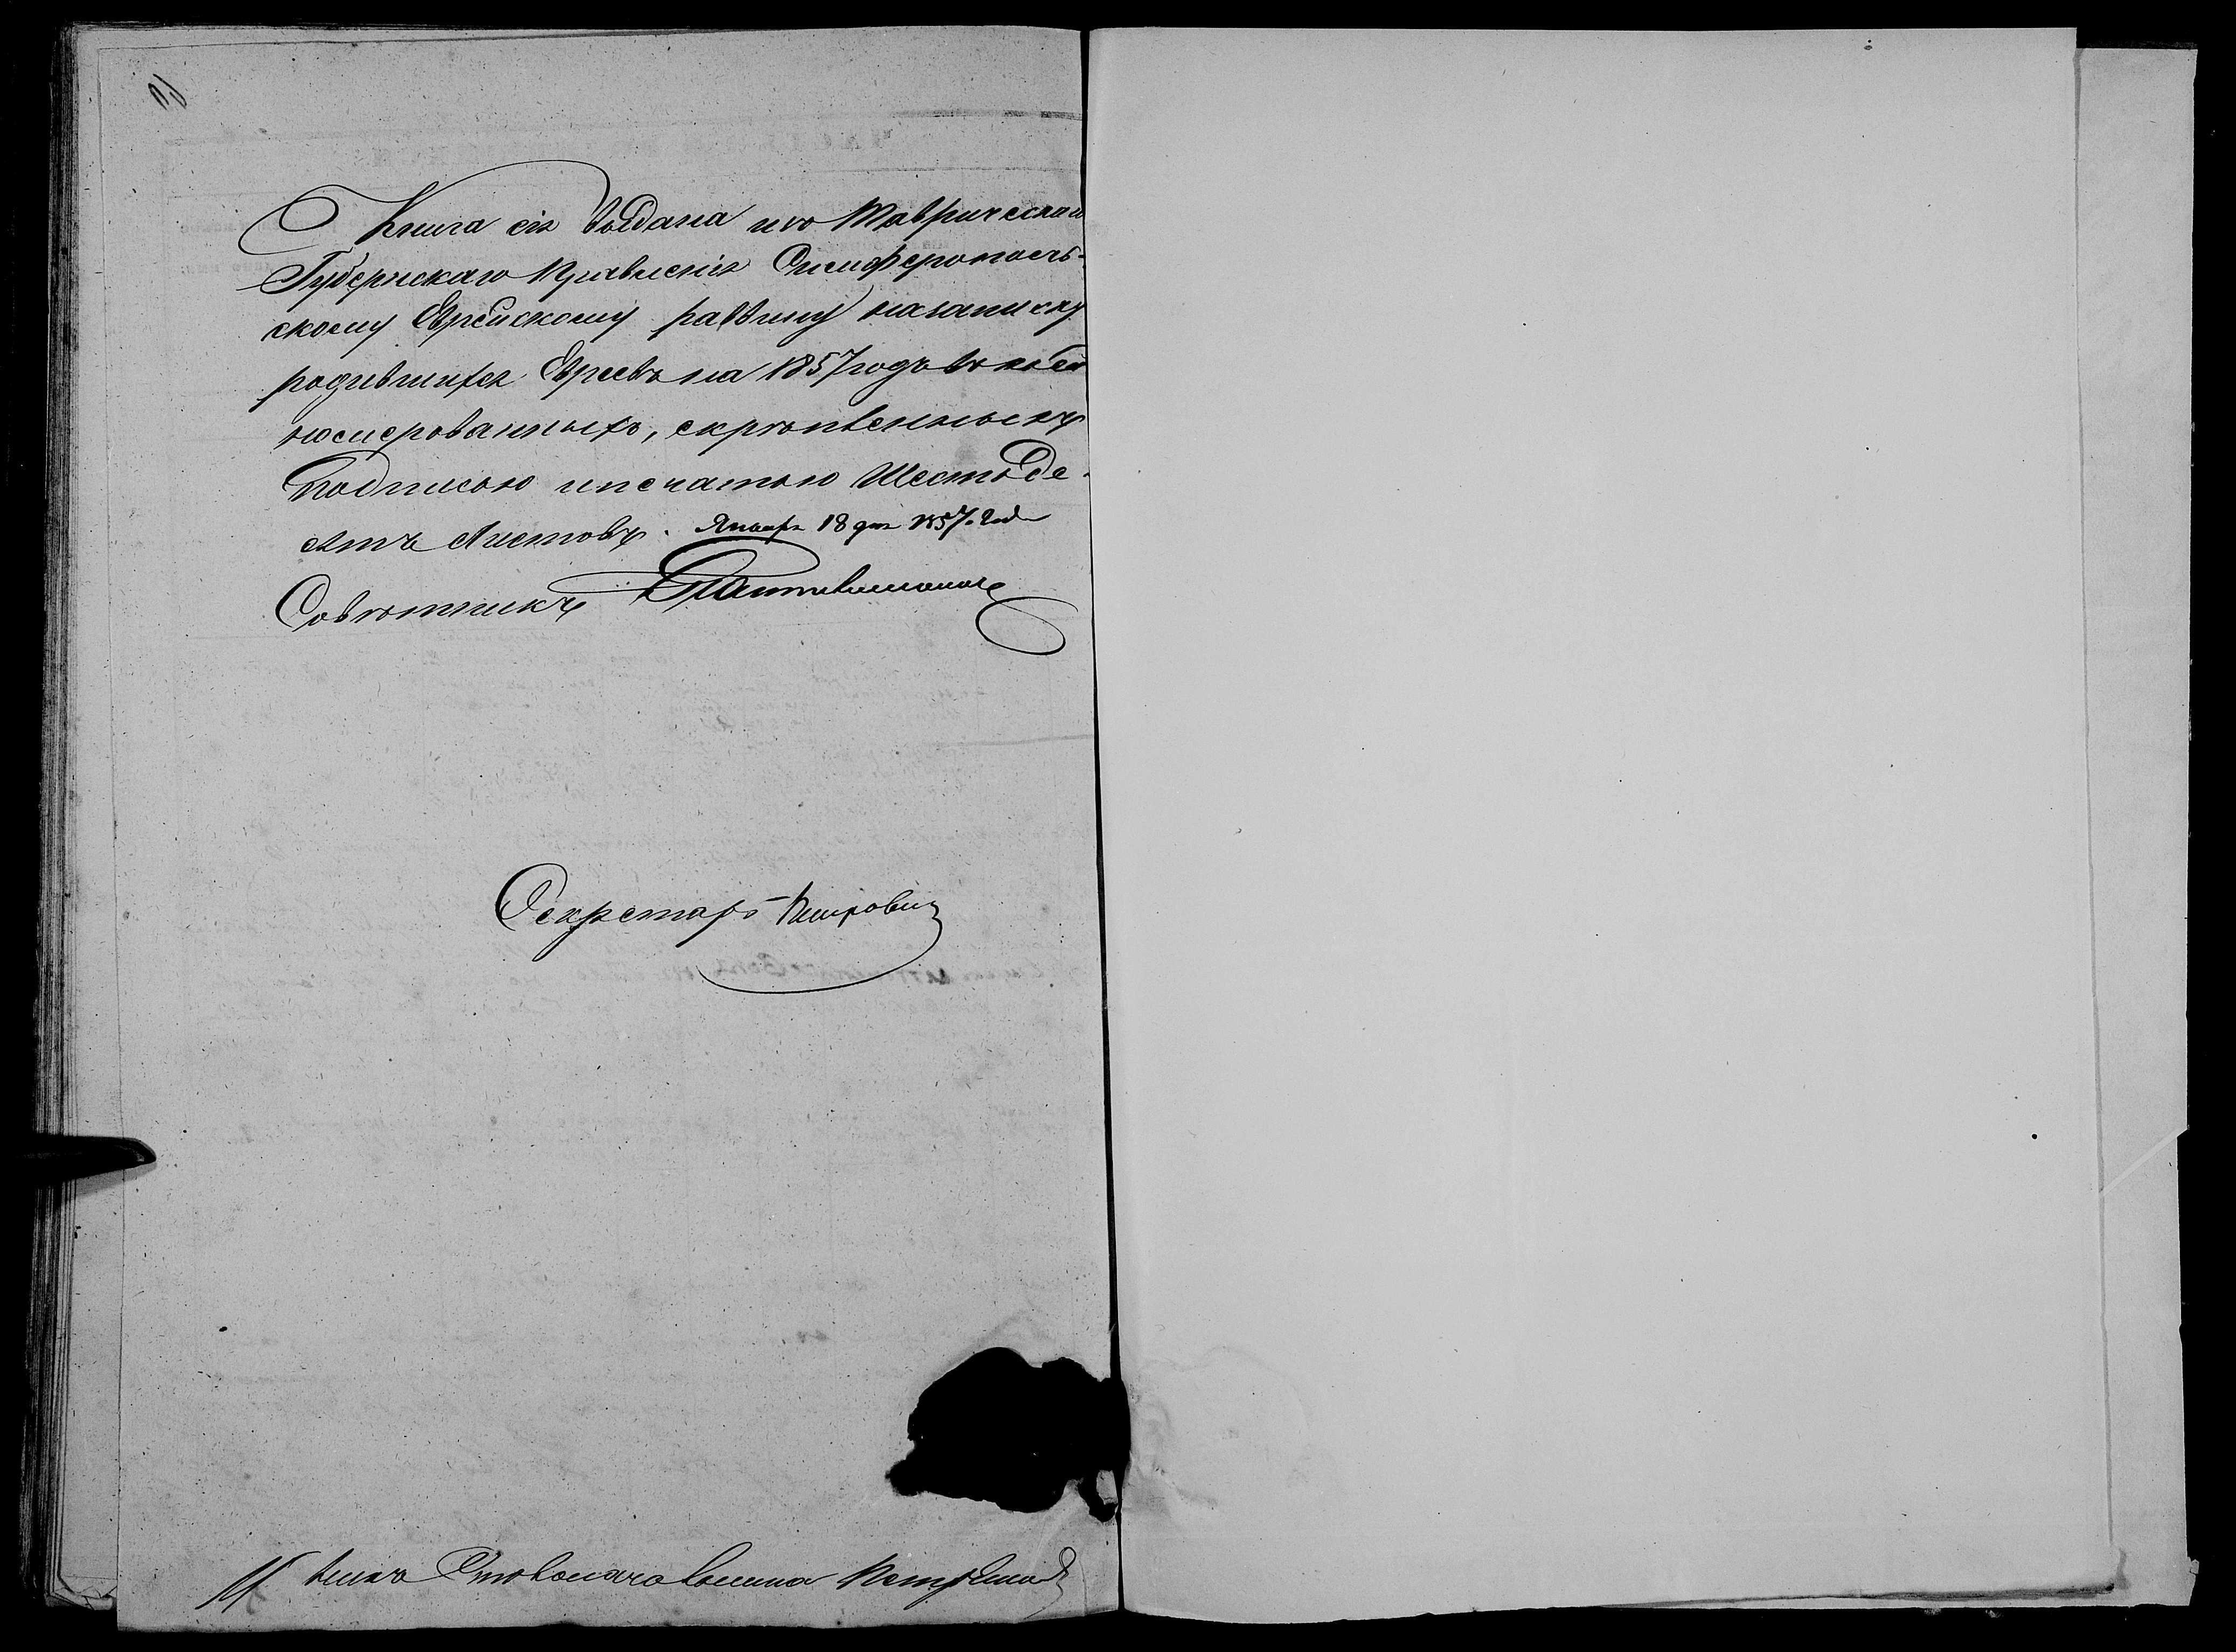 Книга сія выдана изъ Таврическаго
Губернскаго Правленія Симферополь-
скому Еврейскому раввину на записку
родившихся Евреевъ на 1857 годъ въ ней
номерованныхъ, скрѣпленныхъ
подписью и печатью Шестьде-
сятъ листовъ. Января 18 дня 1857. года
Совѣтникъ
Секретарь